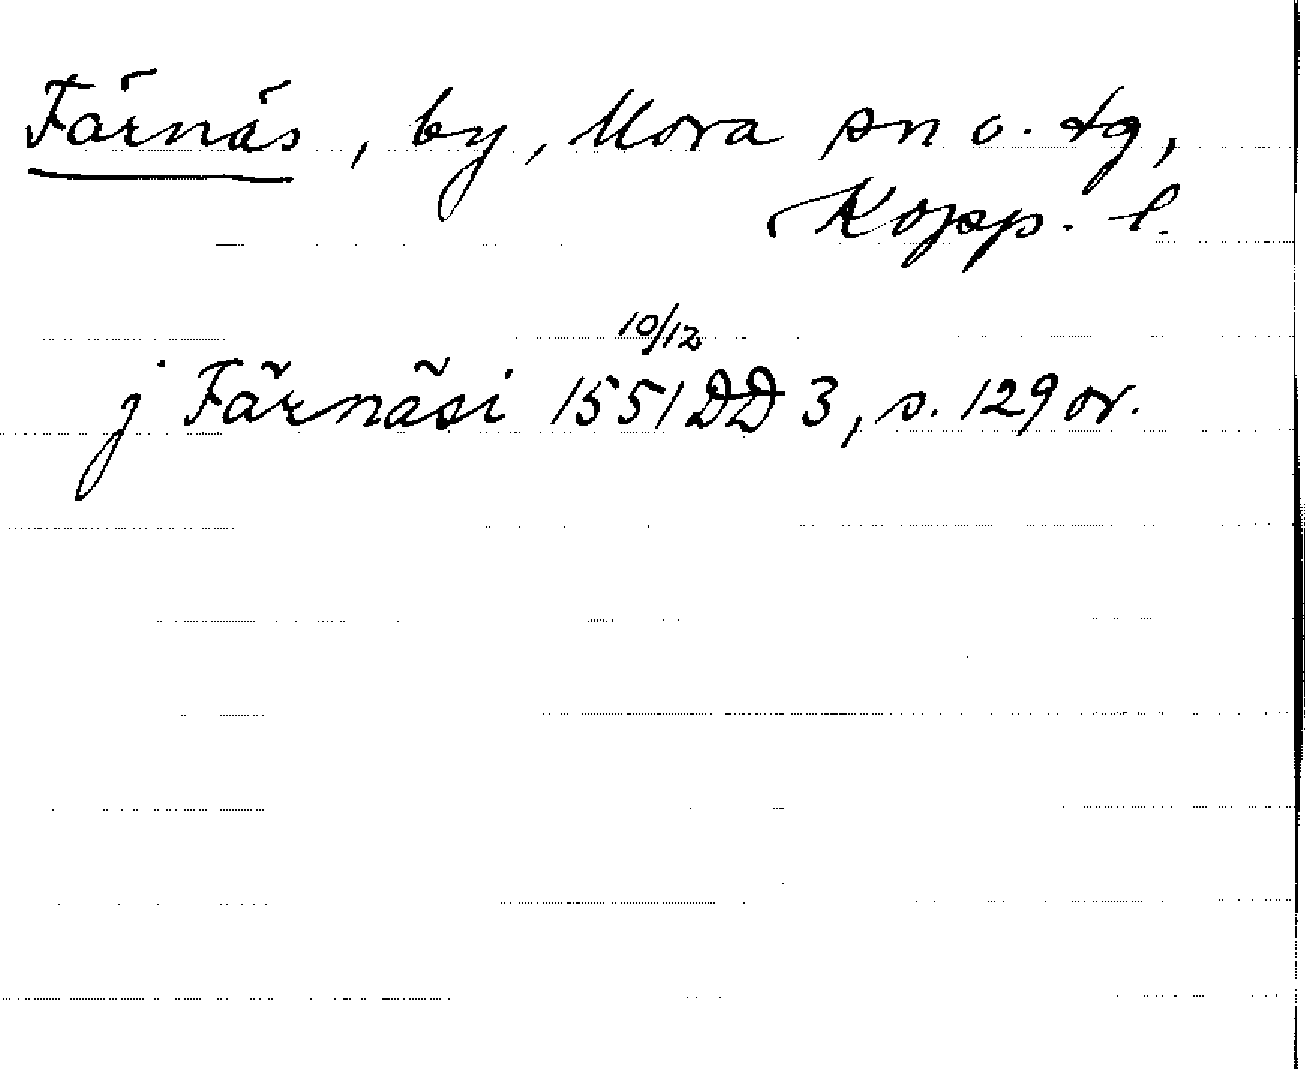 Färnäs, by, Mora sn o. tg,
Kopp. l.
10/12
j Färnäsi 1551 DD 3, s. 129 or.